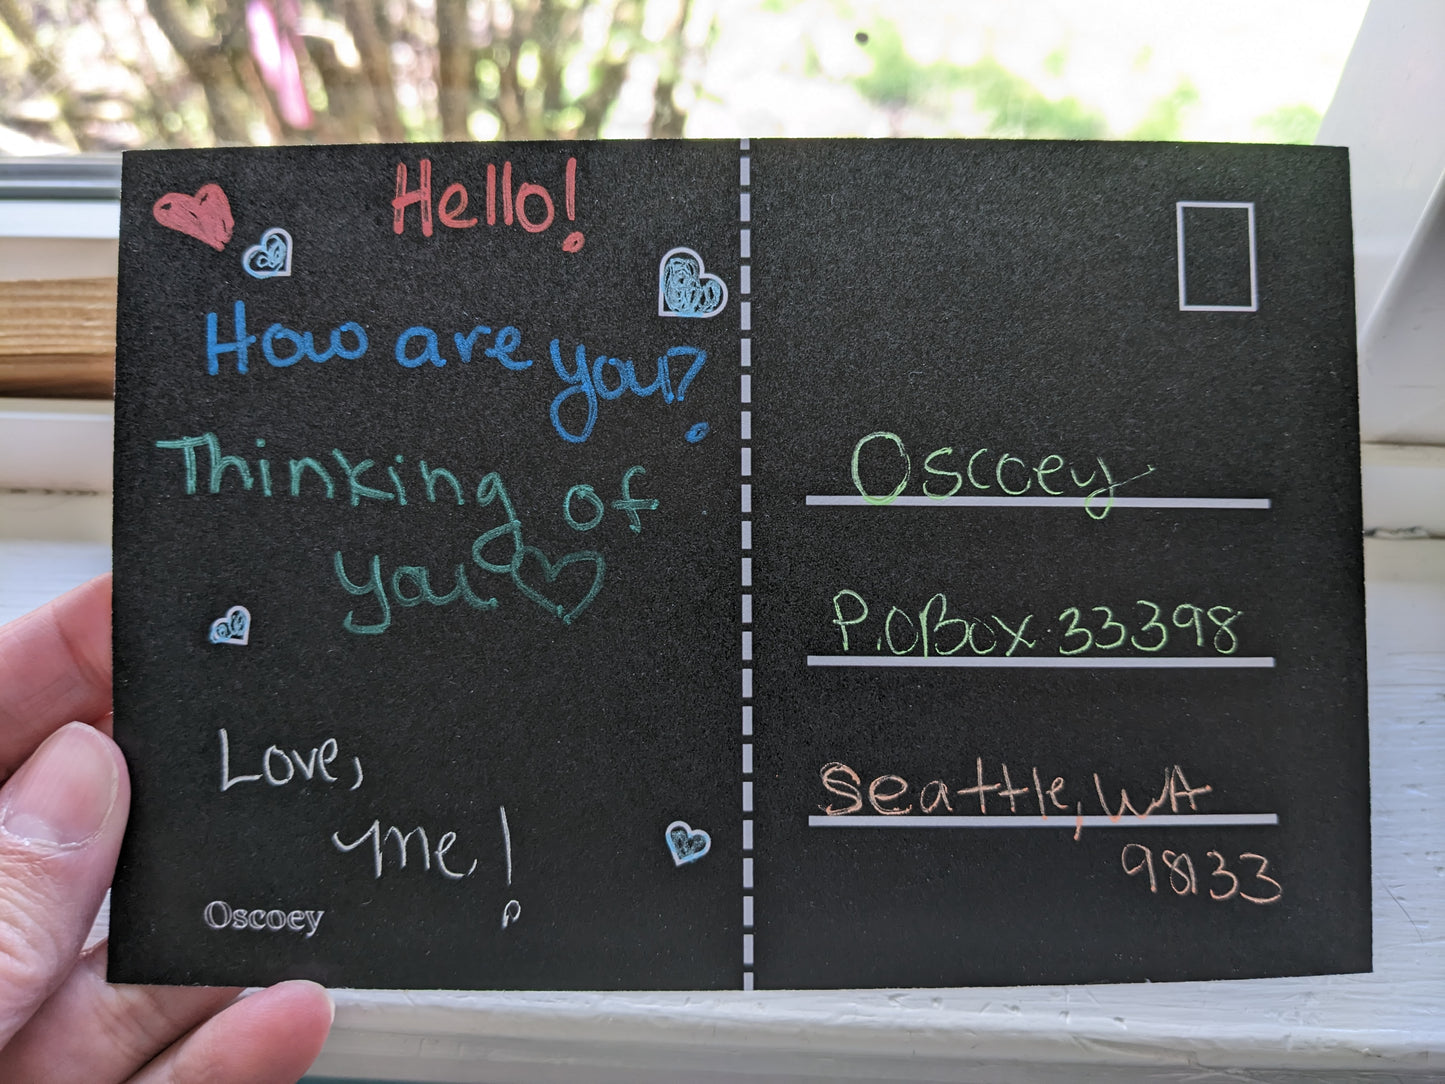 Hello!
How are you?
Thinking of
you
Love,
me!
Oscoey
Oscoey
P.O Box 33398
Seattle, WA
98133